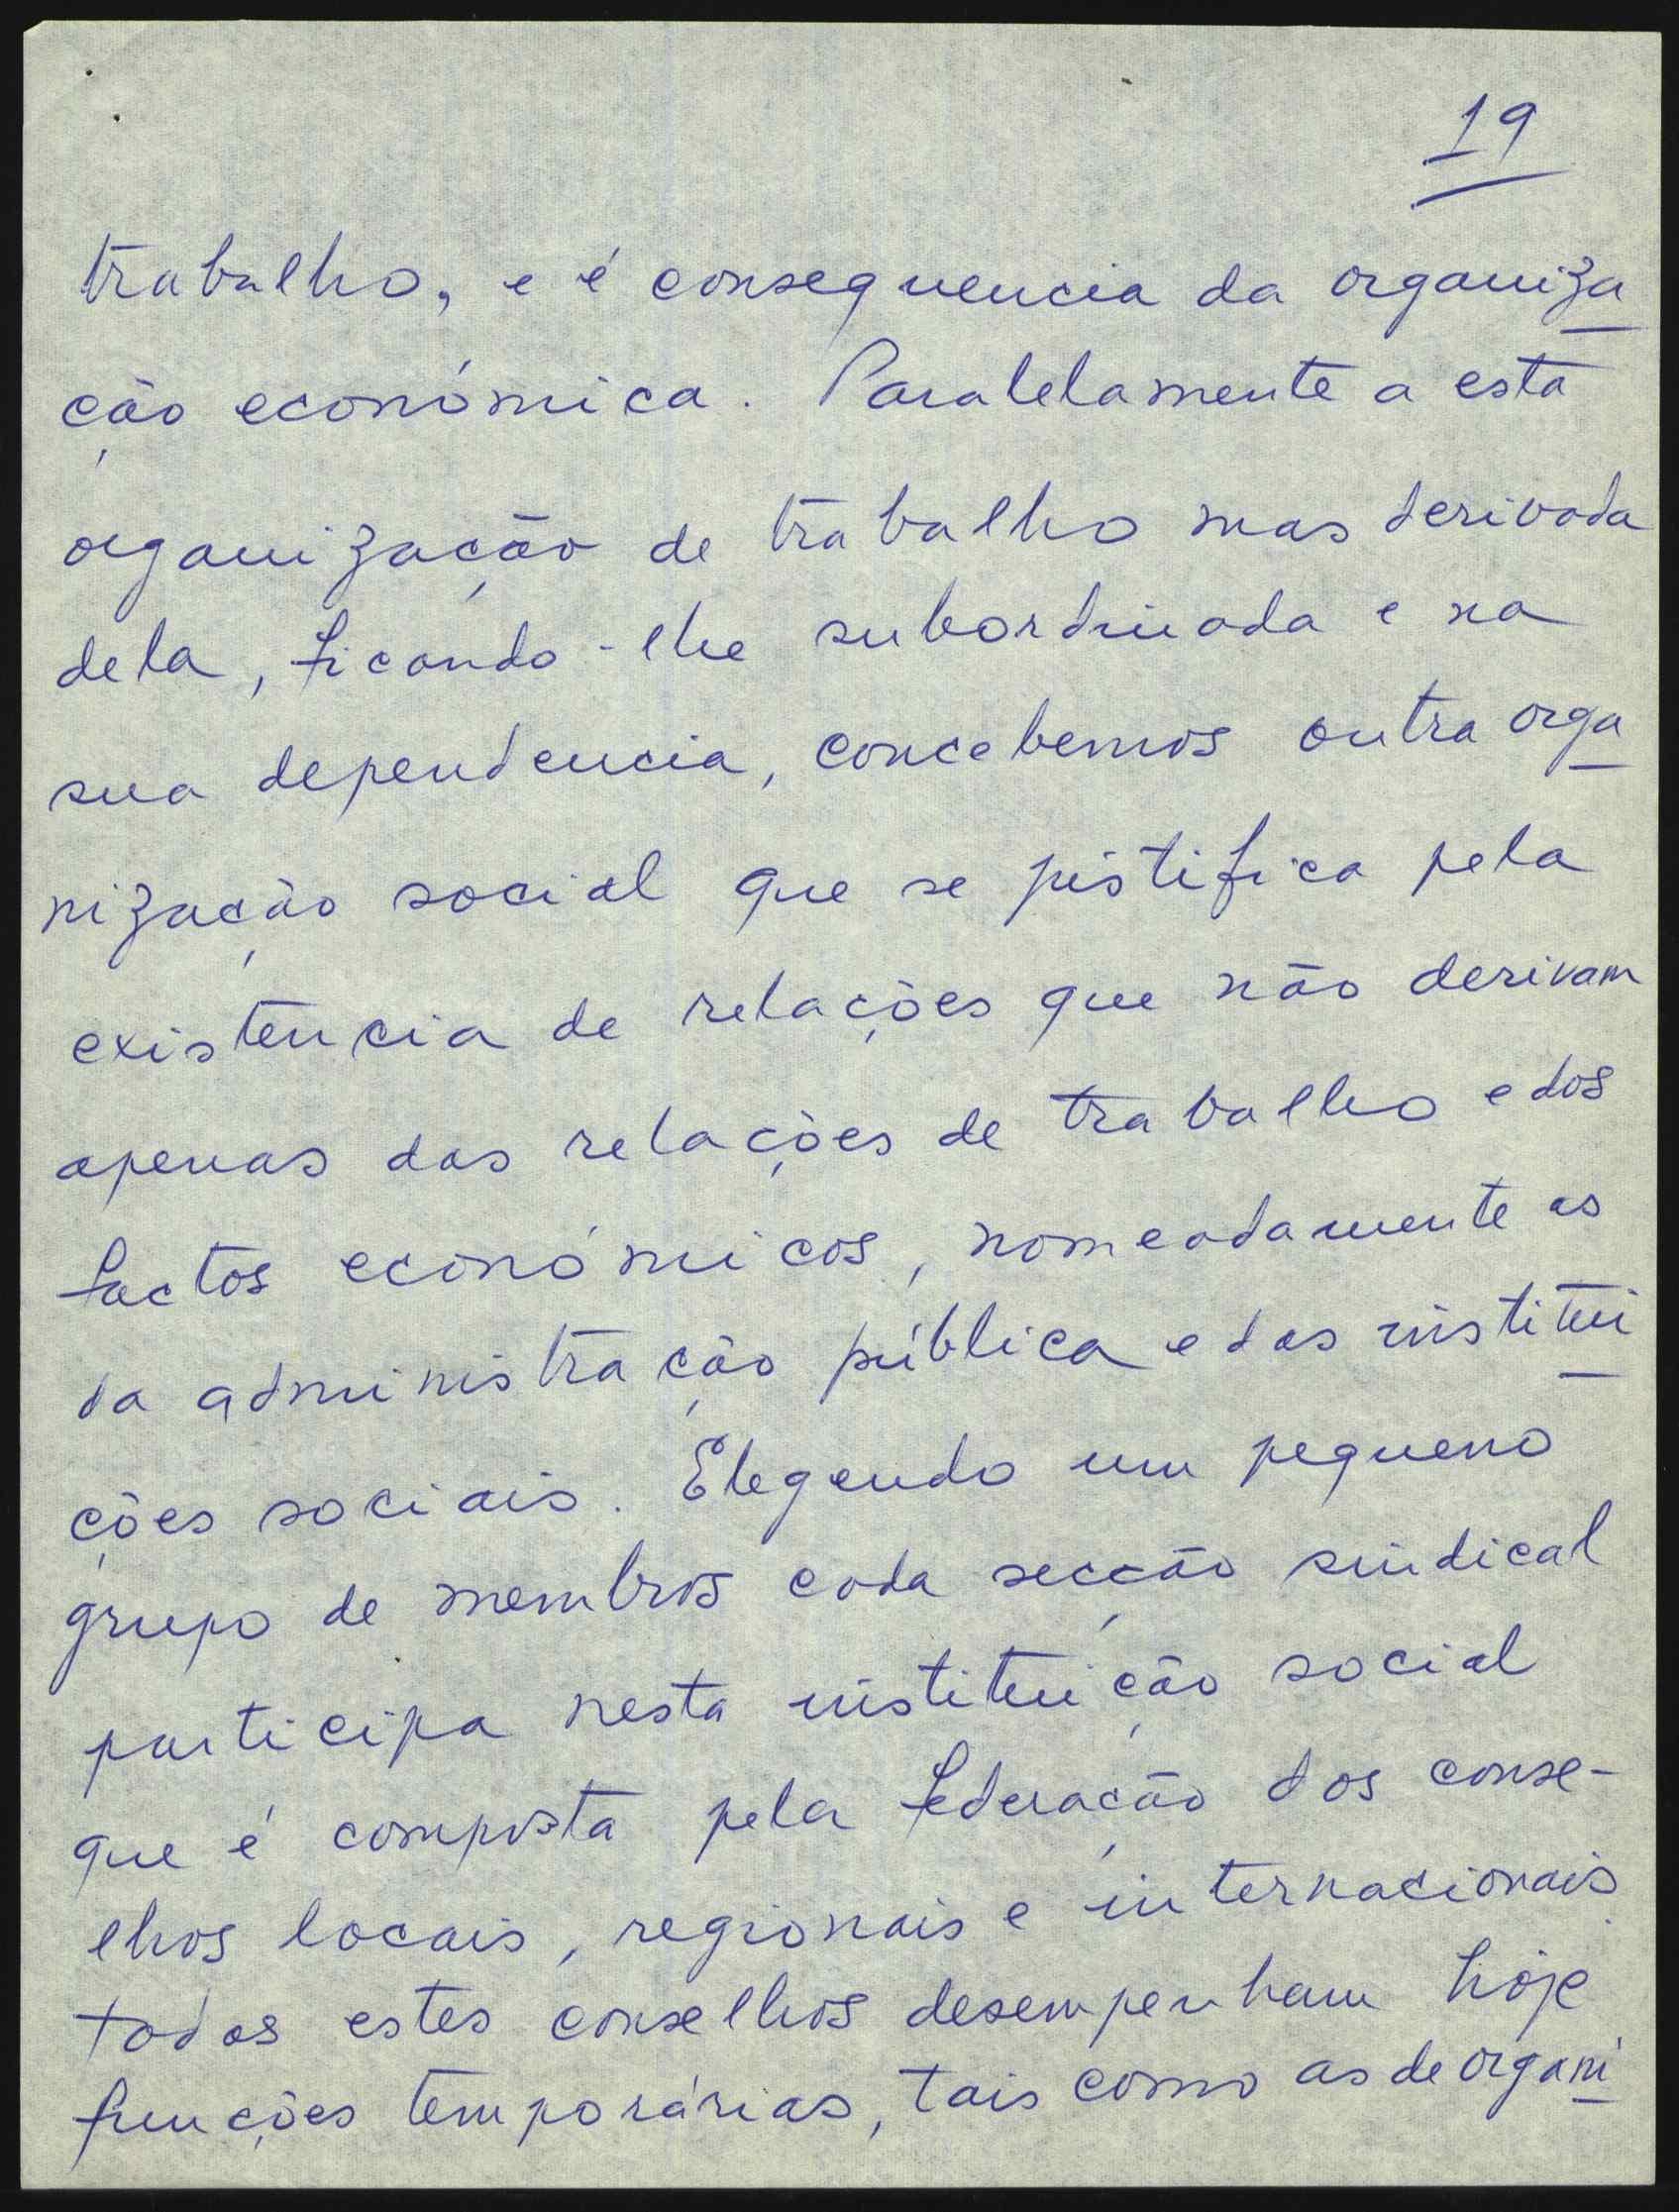 19
trabalho, e é consequencia da organiza
ção económica. Paralelamente a esta
organização de trabalho mas derivada
dela, ficando-lhe subordinada e na
sua dependencia, concebemos outra orga
nização social que se justifica pela
existência de relações que não derivam
apenas das relações de trabalho e dos
factos económicos, nomeadamente as
da administração pública e das institui
ções sociais. Elegendo um pequeno
grupo de membros cada secção sindical
participa nesta instituição social
que é composta pela federação dos conse-
lhos locais, regionais e internacionais.
todos estes conselhos desempenham hoje
funções temporárias, tais como as de organi